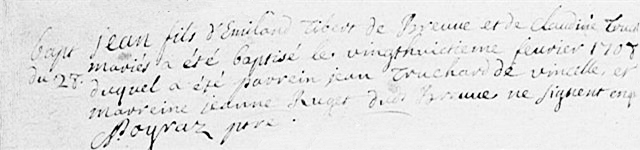 Bapt jean fils d'Emiland Tibert de Breuue et de Claudine Truch
mariés a été baptisé le vingthuictieme feurier 170
du 28. duquel a été parrein jean Truchard de vincelle et
marreine jeanne Ruget du Breuue ne signent enq
Poyraz ptre